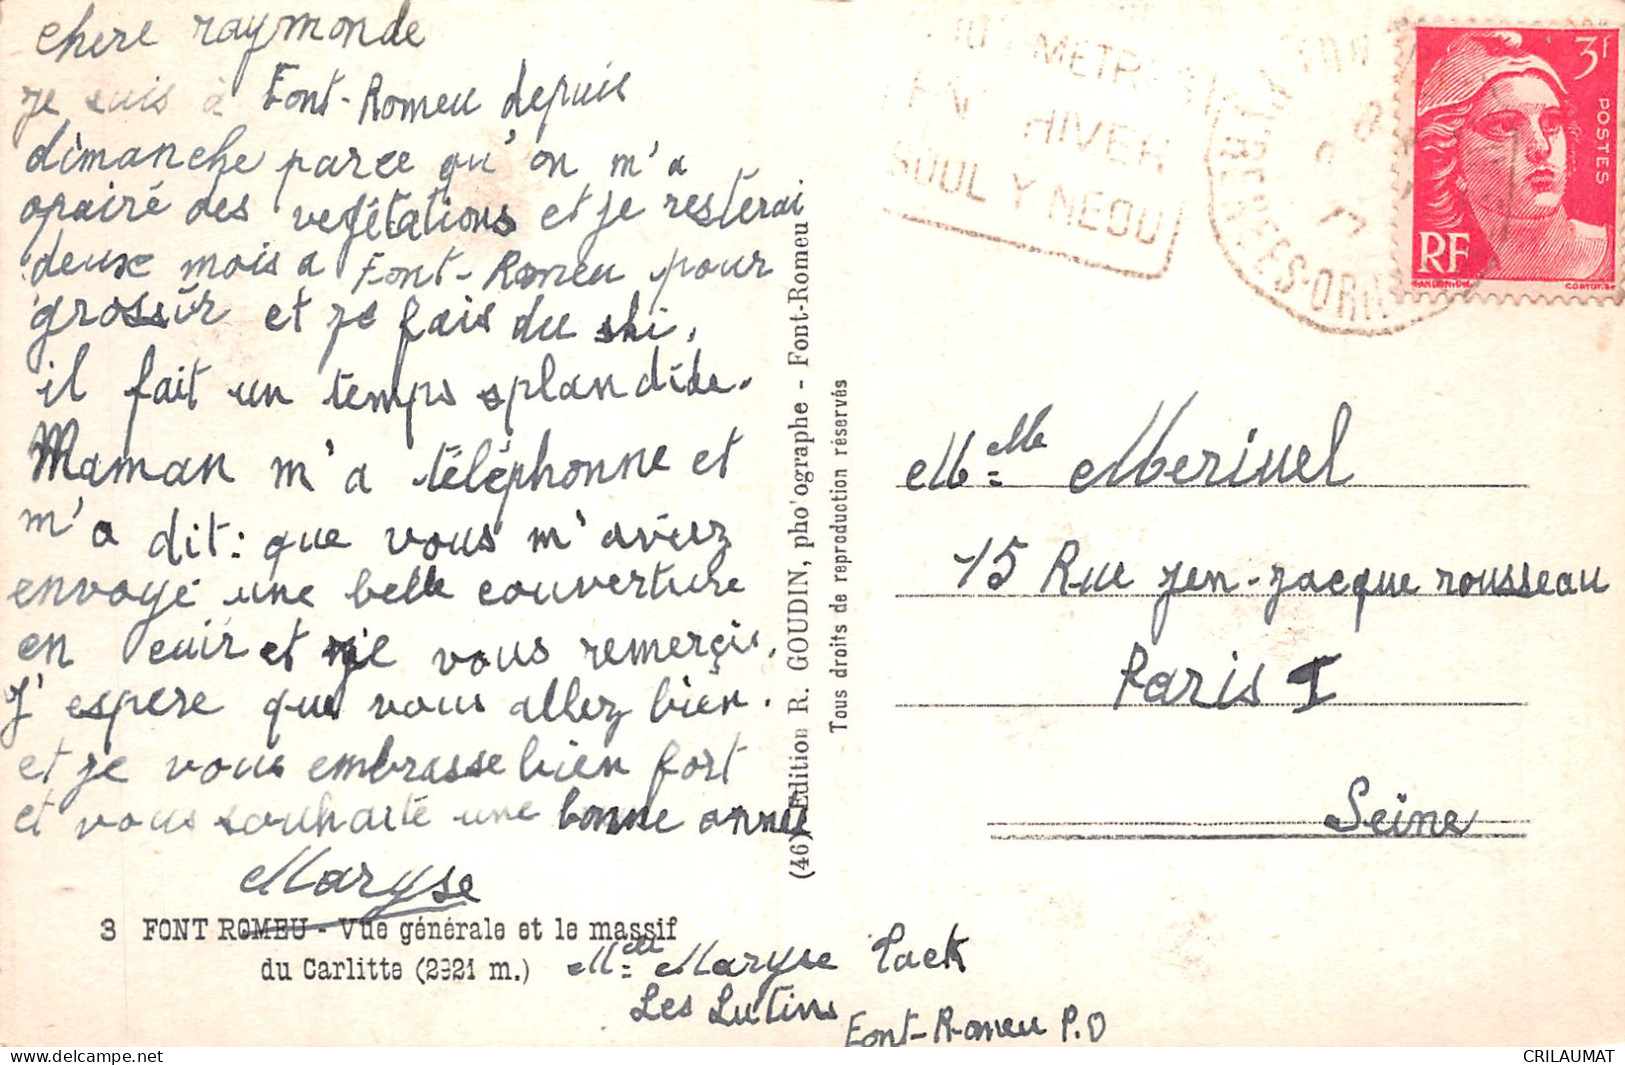 chere raymonde
je suis à Font-Romeu depuis
dimanche parce qu'on m'a
opairé des vegétations et je resterai
deux mois a Font-Romeu pour
grossir et je fais du ski,
il fait un temps splandide.
Maman m'a téléphonne et
m'a dit: que vous m'aviez
envoyé une belle couverture
en cuir et je vous remerçis.
J'espere que vous allez bien.
et je vous embrasse bien fort
et vous souhaite une bonne année
Maryse
3 FONT ROMEU - Vue générale et le massif
du Carlitte (2921 m.)
Melle Maryse Pack
Les Lutins
Font-Romeu P.O
(46) Edition R. GOUDIN, pho'ographe - Font-Romeu
Tous droits de reproduction réservés
METR
EN HIVER
SOULY NEOU
PYRENEES-ORIEN
3F
POSTES
RF
GANDON
CORTOT
Melle Merinel
15 Rue jen-jacque rousseau
Paris I
Seine
CRILAUMAT